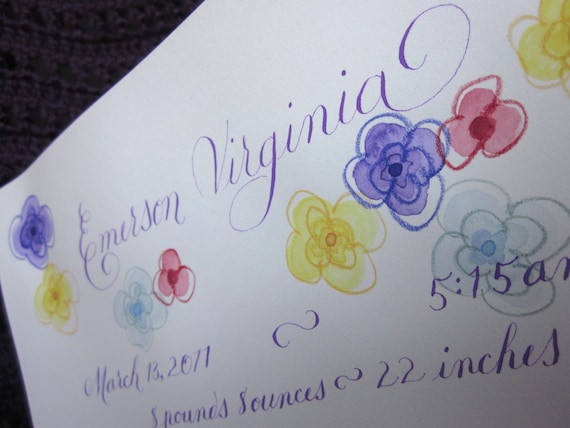 Emerson Virginia
March 13, 2011 ~ 5:15 am
8 pounds 8 ounces ~ 22 inches